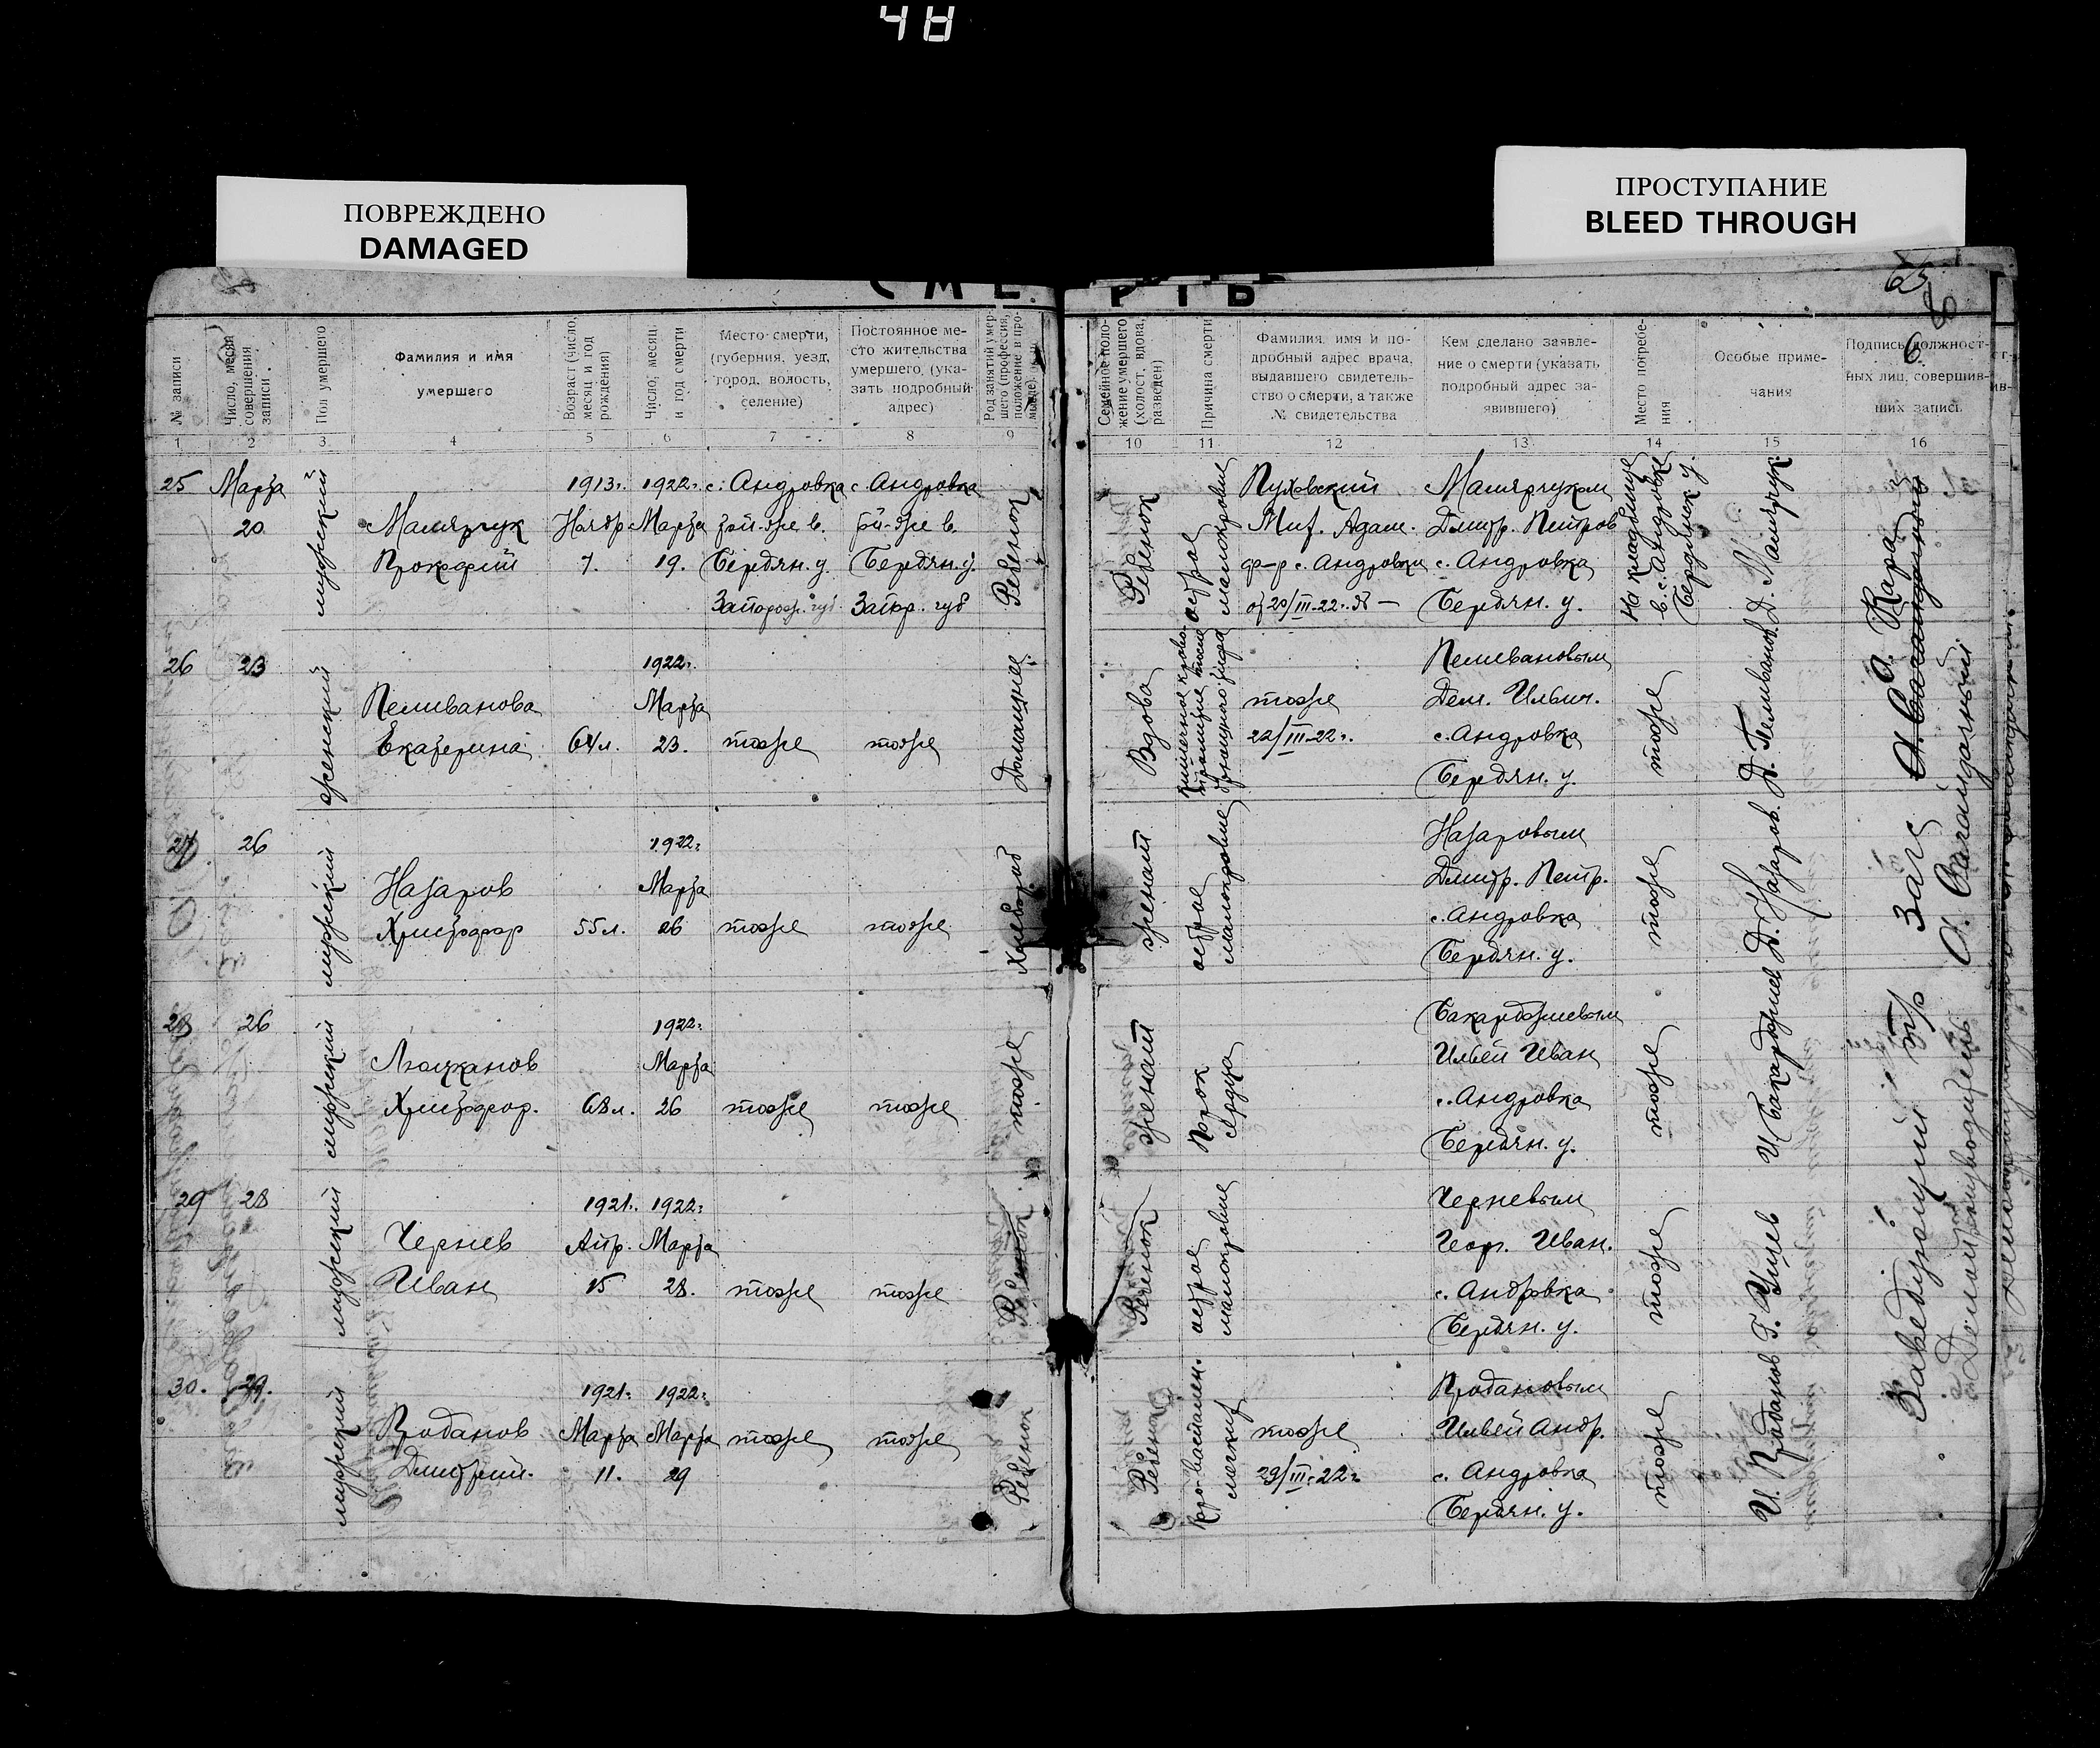 48
ПОВРЕЖДЕНО
DAMAGED
ПРОСТУПАНИЕ
BLEED THROUGH
65
6.
№ записи
Число, месяц совершения записи.
Пол умершего
Фамилия и имя
умершего
Возраст (число, месяц и год рождения)
Число, месяц и год смерти
Место смерти,
(губерния, уезд,
город, волость,
селение)
Постоянное ме-
сто жительства
умершего, (ука-
зать подробный
адрес)
Род занятий умер-
шего (профессия,
положение в про-
Семейное поло-
жение умершего
(холост, вдова,
разведен)
Причина смерти
Фамилия, имя и по-
дробный адрес врача,
выдавшего свидетель-
ство о смерти, а также
№ свидетельства
Кем сделано заявле-
ние о смерти (указать
подробный адрес за-
явившего)
Место погребе-
ния
Особые приме-
чания
Подпись должност-
ных лиц, совершив-
ших запись
1 2 3 4 5 6 7 8 9 10 11 12 13 14 15 16
25 Марта
20
мужской
Прокофий
1913г.
Ноябр
7.
1922г.
Марта
19.
с. Андровка
той-же в.
Бердян. у.
Запорож. губ
с. Андровка
той-же в.
Бердян. у.
Запор. губ
Ребенок
Ребенок
острое
малокровие
Пуховский
Миф. Адам.
ф-р с. Андровки
от 20/III-22г. № —
Дмитр. Петров
с. Андровка
Бердян. у.
На кладбище
в с. Андровке
Бердянск у.
26 23
женский
Пеливанова
Екатерина
64 л.
1922г.
Марта
23.
тоже
тоже
Домашнее
Вдова
тоже
22/III-22г.
Пеливановым
Дем. Ильич.
с. Андровка
Бердян. у.
тоже
Д. Пеливанов
27 26
мужской
Назаров
Христофор
55 л.
1922г.
Марта
26
тоже
тоже
Хлебороб
женат
острое
малокровие
Назаровым
Дмитр. Петр.
с. Андровка
Бердян. у.
тоже
Д. Назаров.
28 26
мужской
Христофор.
68 л.
1922г.
Марта
26
тоже
тоже
тоже
женат
Порок
сердца
Бакарджиевым
Ильей Иван
с. Андровка
Бердян. у.
тоже
И Бакарджиев
29 28
мужской
Чернев
Иван
1921г.
Апр.
15
1922г.
Марта
28.
тоже
тоже
Ребенок
Ребенок
острое
малокровие
Черневым
Геор. Иван.
с. Андровка
Бердян. у.
тоже
30. 29.
мужской
Проданов
Дмитрий.
1921г.
Марта
11.
1922г.
Марта
29
тоже
тоже
Ребенок
Ребенок
кро-воспален.
легких
тоже
29/III-22г.
Продановым
Ильей Андр.
с. Андровка
Бердян. у.
тоже
И. Проданов
Заведующий
загс
А. Кара
Делопроизводитель